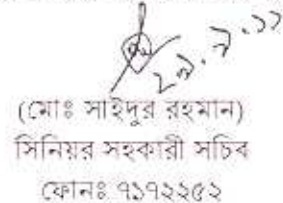 ২৯.৯.১১
(মোঃ সাইদুর রহমান)
সিনিয়র সহকারী সচিব
ফোনঃ ৭১৭২২৫২